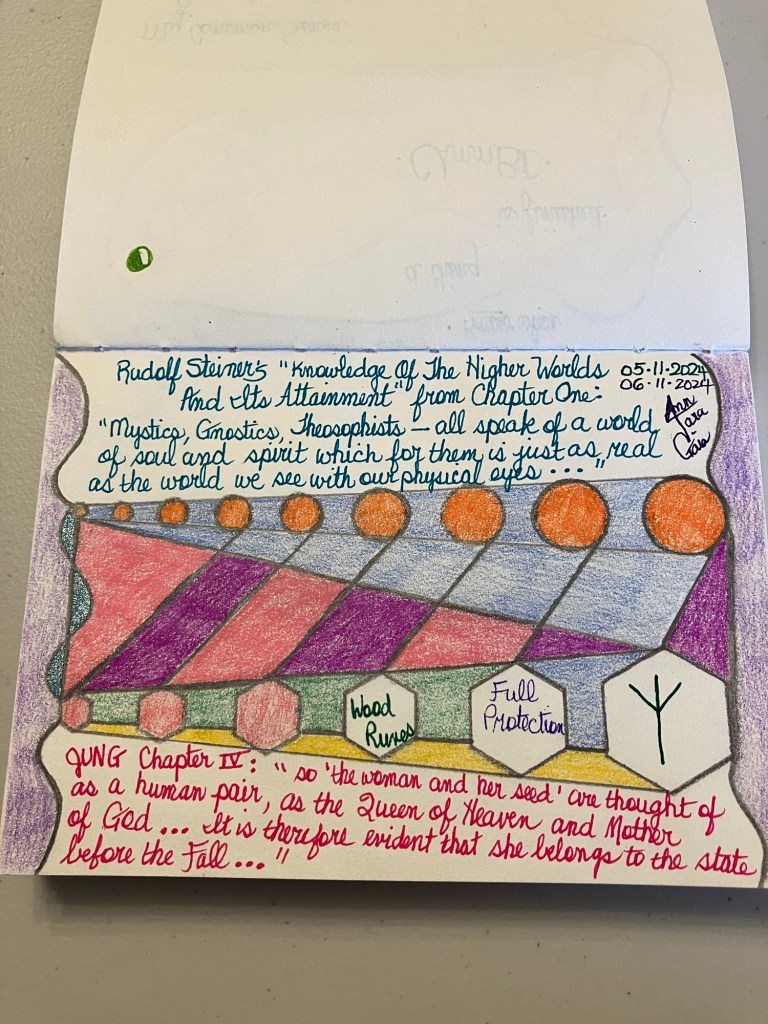 Rudolf Steiner's "Knowledge Of The Higher Worlds
And Its Attainment" from Chapter One:
05-11-2024
06-11-2024
"Mystics, Gnostics, Theosophists — all speak of a world
of soul and spirit which for them is just as real
as the world we see with our physical eyes ... "
Wood
Runes
Full
Protection
JUNG Chapter IV: " so 'the woman and her seed' are thought of
as a human pair, as the Queen of Heaven and Mother
of God ... It is therefore evident that she belongs to the state
before the Fall ... "